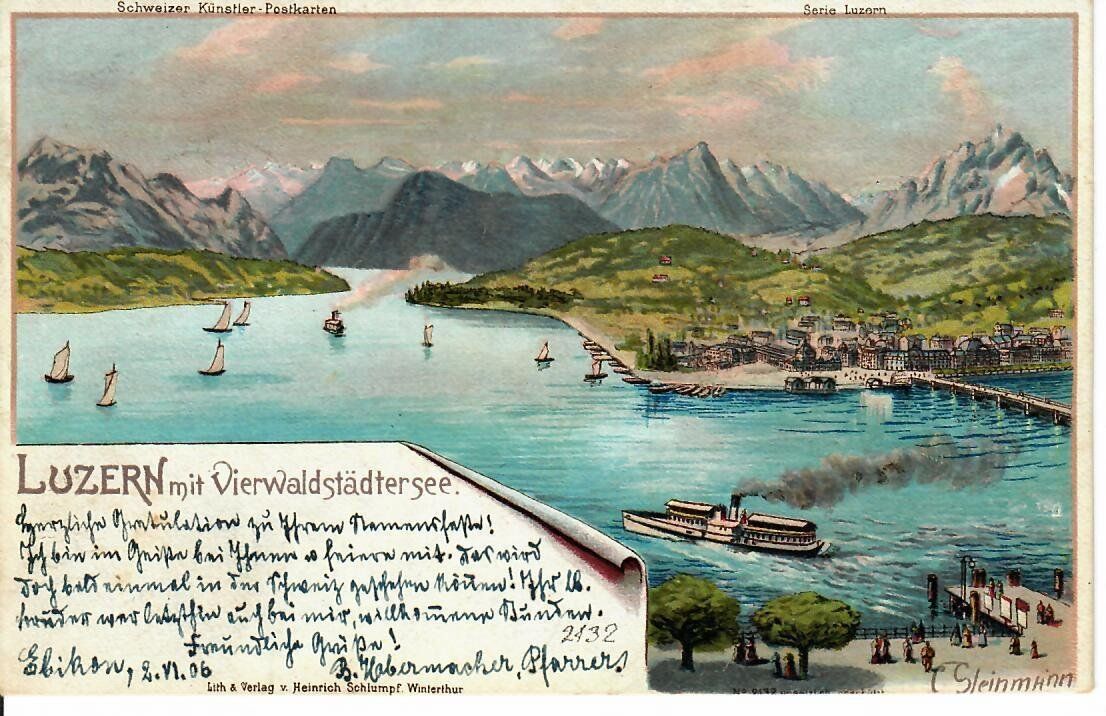 Schweizer Künstler-Postkarten
Serie Luzern
LUZERN mit Vierwaldstädtersee.
Herzliche Gratulation zu Ihrem Namensfeste!
Ich bin im Geiste bei Ihnen u feiere mit. Das wird
doch bald einmal in der Schweiz geschehen können! Ihr lb.
Bruder war letzthin auch bei mir, willkommene Stunden.
Freundliche Grüße!
Ebikon, 2.VI 06 Pfarrer
2132
Lith & Verlag v. Heinrich Schlumpf, Winterthur
No 2132
Steinmann